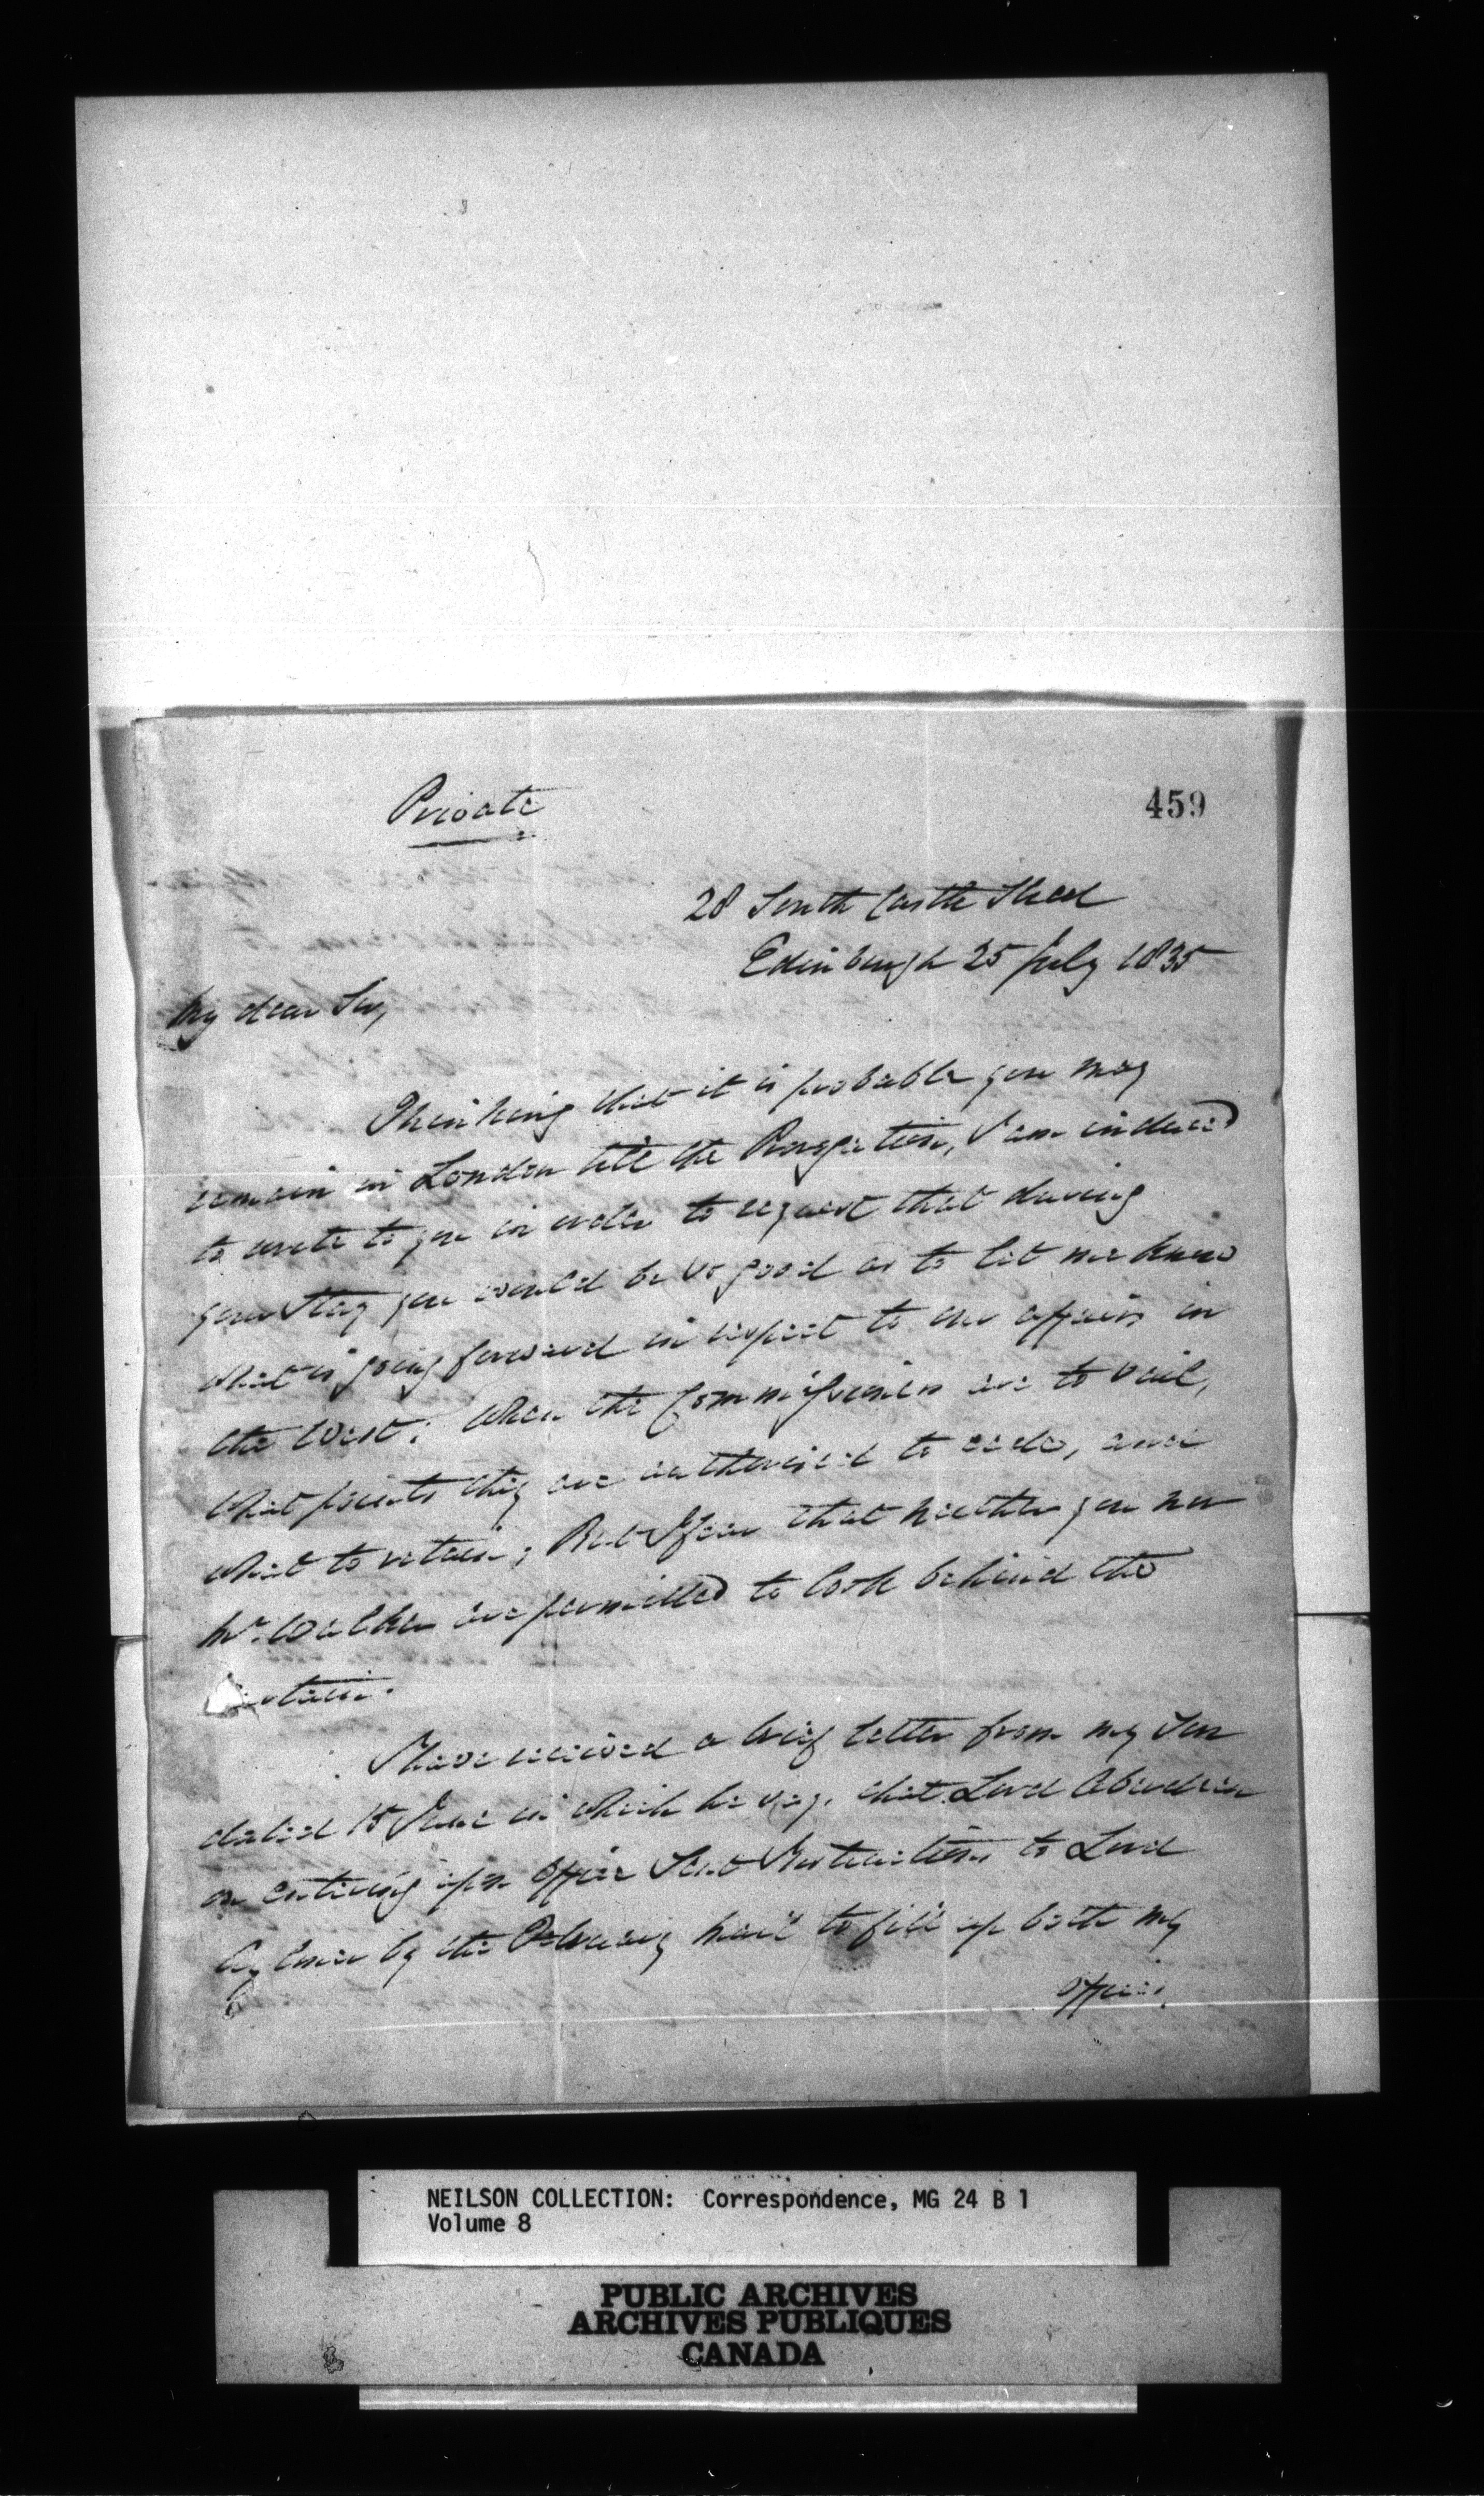 Private
459
28 South Castle Street
Edinburgh 25 July 1835
My dear Sir,
Thinking that it is probable you may
remain in London till the Prorogation, I am induced
to write to you in order to request that during
your stay you would be so good as to let me know
what is going forward in respect to our affairs in
the West; When the Commissioners are to sail,
What points they are authorised to cede, and
what to retain; But I fear that neither you nor
Mr. Walker are permitted to look behind the
Curtain.
I have received a brief letter from my Son
dated 15 June in which he says that Lord Aberdeen
on entering upon Office Sent Instructions to Lord
Aylmer by the February mail to fill up both my
offices.
NEILSON COLLECTION: Correspondence, MG 24 B 1
Volume 8
PUBLIC ARCHIVES
ARCHIVES PUBLIQUES
CANADA